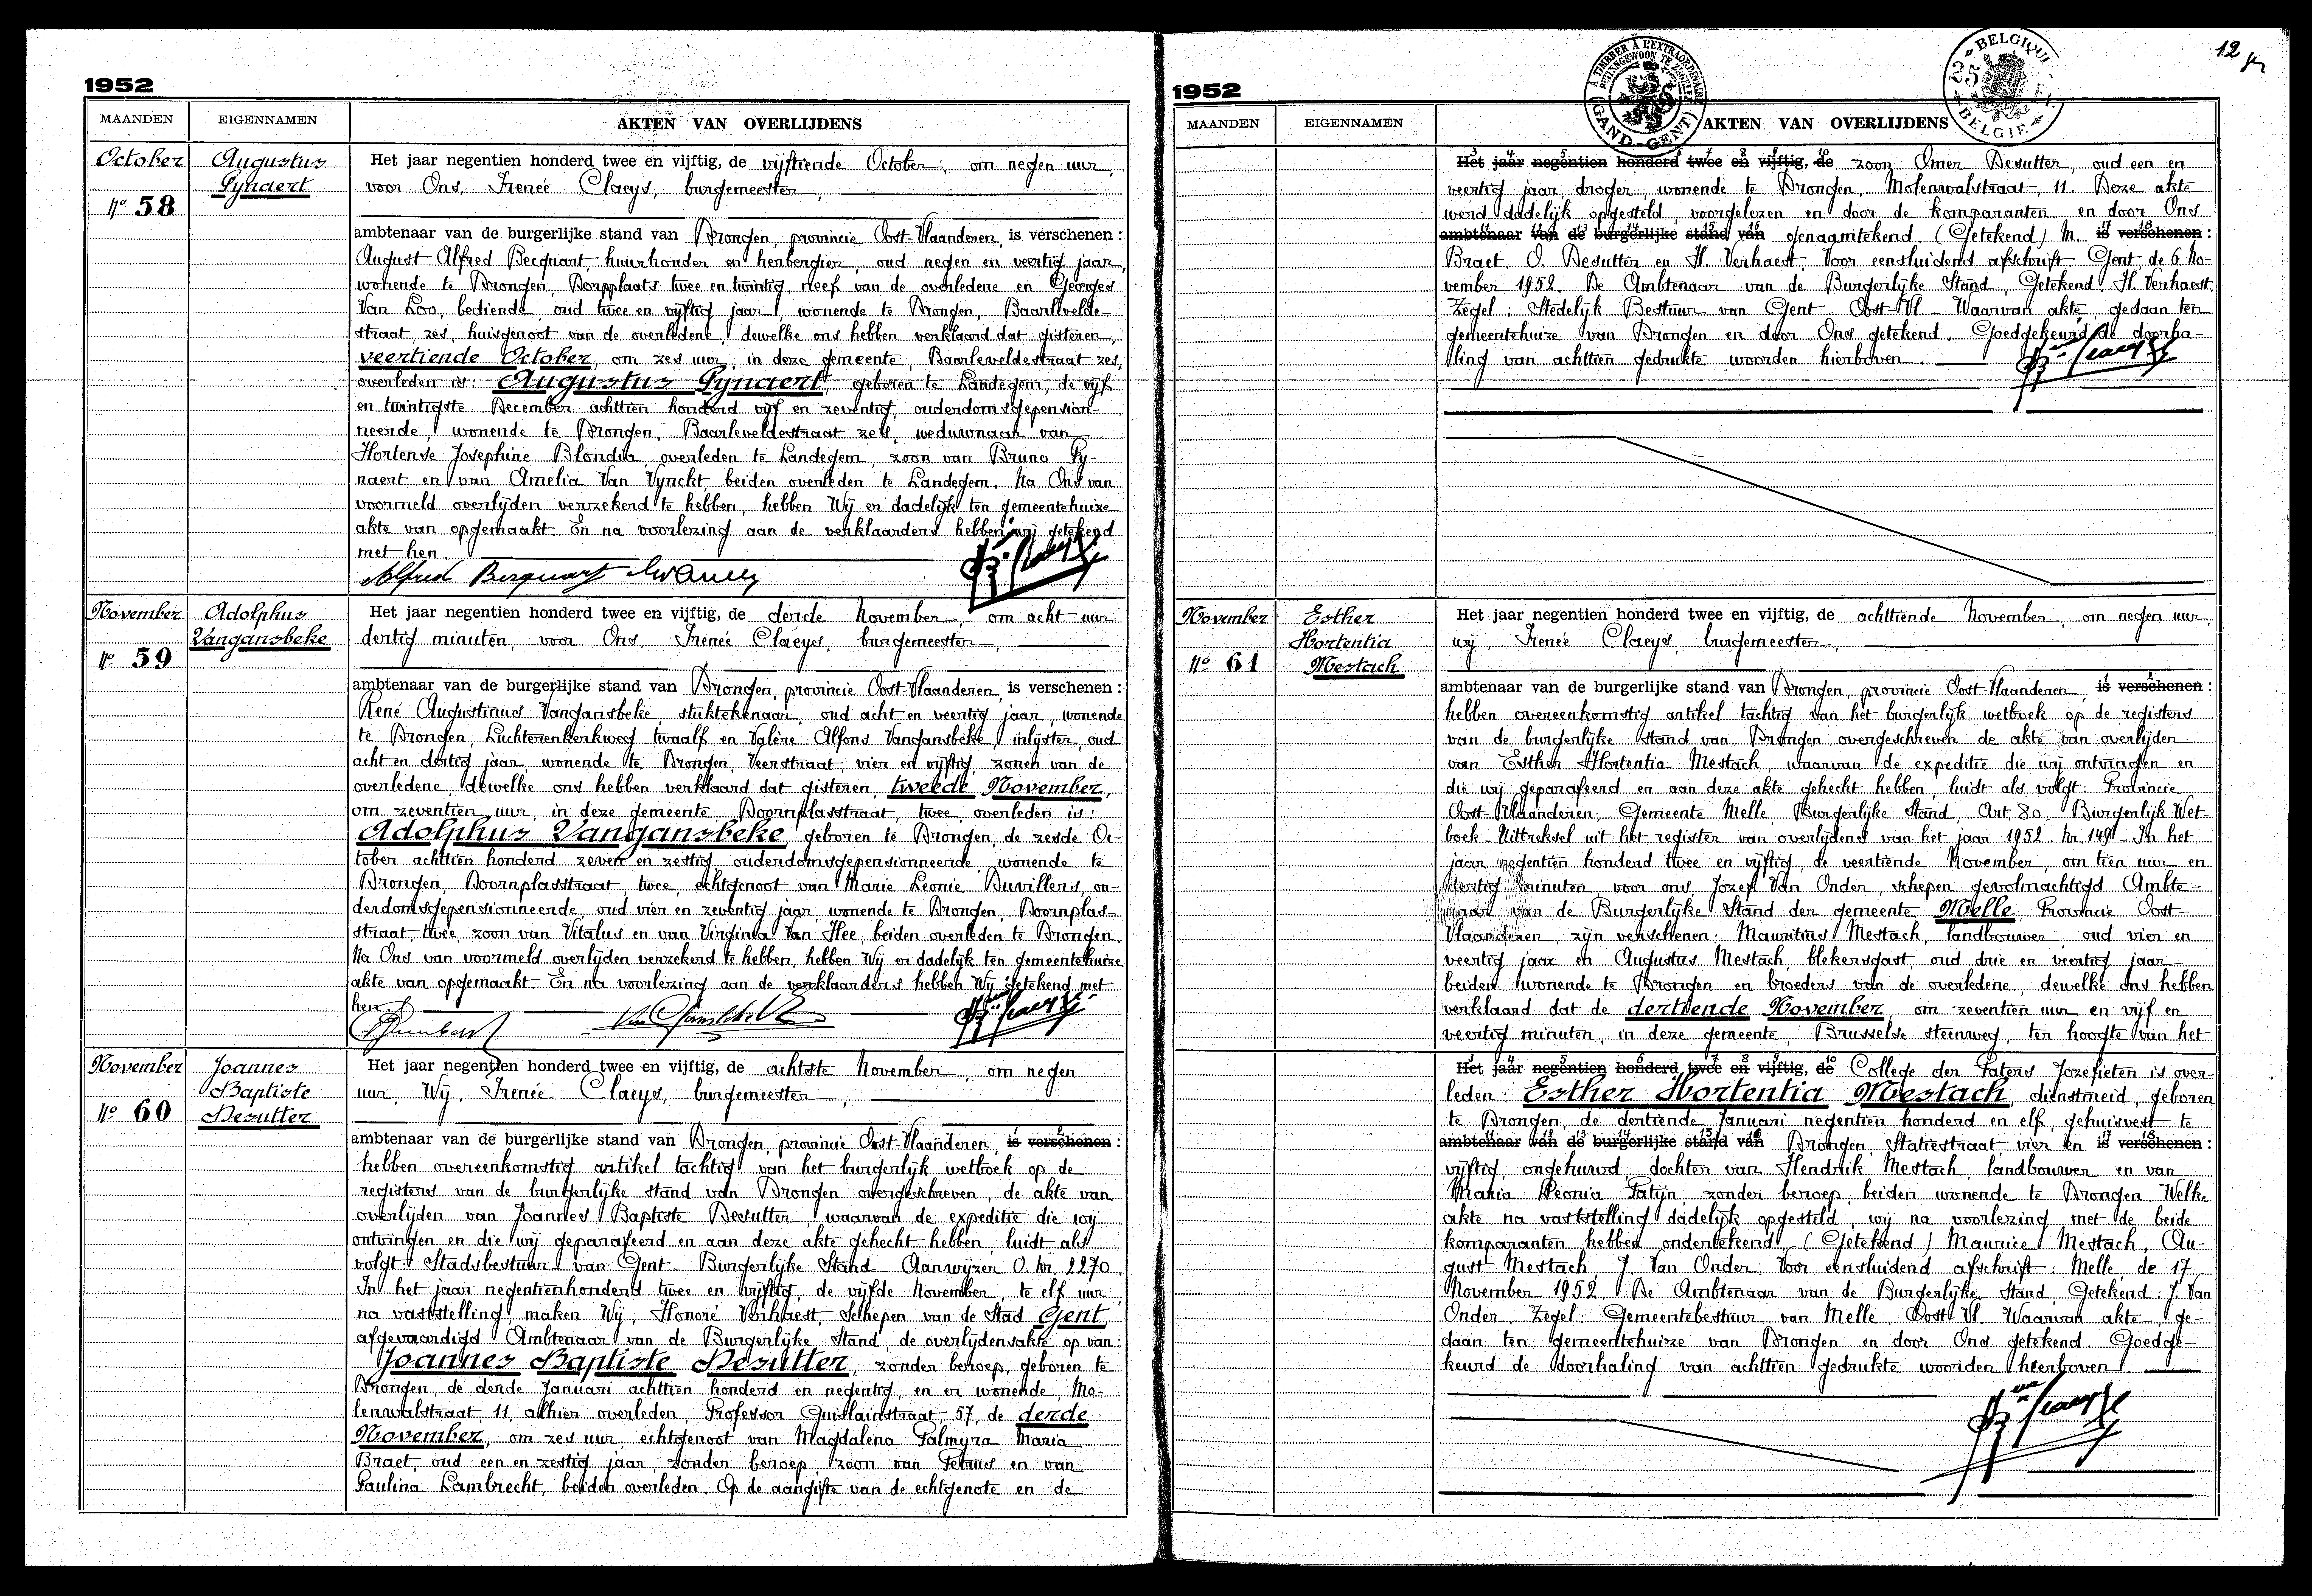 1952
MAANDEN EIGENNAMEN AKTEN VAN OVERLIJDENS
October
Nº 58
Augustus
Gynaert
Het jaar negentien honderd twee en vijftig, de vijftiende October, om negen uur,
voor Ons, Irenée Claeys, burgemeester,
ambtenaar van de burgerlijke stand van Drongen, provincie Oost-Vlaanderen, is verschenen :
August Alfred Becquart, huurhouder en herbergier, oud negen en veertig jaar,
wonende te Drongen, Dorpplaats twee en twintig, neef van de overledene en Georges
Van Loo, bediende, oud twee en vijftig jaar, wonende te Drongen, Baarlevelde-
straat, zes, huisgenoot van de overledene, dewelke ons hebben verklaard dat gisteren,
veertiende October, om zes uur, in deze gemeente, Baarleveldestraat zes,
overleden is: Augustus Gynaert, geboren te Landegem, de vijf
en twintigste December achttien honderd vijf en zeventig, ouderdomsgepension-
neerde, wonende te Drongen, Baarleveldestraat zes, weduwnaar van
Hortense Josephine Blondia, overleden te Landegem, zoon van Bruno Gy-
naert en van Amelia Van Vynckt, beiden overleden te Landegem. Na Ons van
voormeld overlijden verzekerd te hebben, hebben Wij er dadelijk ten gemeentehuize
akte van opgemaakt. En na voorlezing aan de verklaarders hebben wij getekend
met hen.
Alfred Becquart
November
Nº 59
Adolphus
Vangansbeke
Het jaar negentien honderd twee en vijftig, de derde November, om acht uur
dertig minuten, voor Ons, Irenée Claeys, burgemeester,
ambtenaar van de burgerlijke stand van Drongen, provincie Oost-Vlaanderen, is verschenen :
René Augustinus Vangansbeke, stuktekenaar, oud acht en veertig jaar, wonende
te Drongen, Luchterenkerkweg twaalf en Valère Alfons Vangansbeke, inlijster, oud
acht en dertig jaar, wonende te Drongen, Veerstraat, vier en vijftig, zonen van de
overledene, dewelke ons hebben verklaard dat gisteren, tweede November,
om zeventien uur, in deze gemeente, Doornplasstraat, twee, overleden is:
Adolphus Vangansbeke, geboren te Drongen, de zesde Oc-
tober achttien honderd zeven en zestig, ouderdomsgepensionneerde, wonende te
Drongen, Doornplasstraat, twee, echtgenoot van Marie Leonie Duvillers, ou-
derdomsgepensionneerde, oud vier en zeventig jaar, wonende te Drongen, Doornplas-
straat, twee, zoon van Vitalus en van Virginia Van Hee, beiden overleden te Drongen.
Na Ons van voormeld overlijden verzekerd te hebben, hebben Wij er dadelijk ten gemeentehuize
akte van opgemaakt. En na voorlezing aan de verklaarders hebben Wij getekend met
hen.
November
Nº 60
Joannes
Baptiste
Desutter
Het jaar negentien honderd twee en vijftig, de achtste November, om negen
uur, Wij, Irenée Claeys, burgemeester,
ambtenaar van de burgerlijke stand van Drongen, provincie Oost-Vlaanderen, is verschenen :
hebben overeenkomstig artikel tachtig van het burgerlijk wetboek op de
registers van de burgerlijke stand van Drongen overgeschreven, de akte van
overlijden van Joannes Baptiste Desutter, waarvan de expeditie die wij
ontvingen en die wij geparafeerd en aan deze akte gehecht hebben, luidt als
volgt: Stadsbestuur van Gent - Burgerlijke Stand - Aanwijzer O. Nr. 2270.
In het jaar negentienhonderd twee en vijftig, de vijfde November, te elf uur,
na vaststelling, maken Wij, Honoré Verhaest, Schepen van de Stad Gent,
afgevaardigd Ambtenaar van de Burgerlijke Stand, de overlijdensakte op van:
Joannes Baptiste Desutter, zonder beroep, geboren te
Drongen, de derde Januari achttien honderd en negentig, en er wonende, Mo-
lenwalstraat, 11, alhier overleden, Professor Guislainstraat, 57, de derde
November, om zes uur, echtgenoot van Magdalena Palmyra Maria
Braet, oud een en zestig jaar, zonder beroep, zoon van Petrus en van
Paulina Lambrecht, beiden overleden. Op de aangifte van de echtgenote en de
12
1952
À TIMBRER À L'EXTRAORDINAIRE
GAND-GENT
BELGIQUE
25 Fr.
BELGIE
MAANDEN EIGENNAMEN AKTEN VAN OVERLIJDENS
Het jaar negentien honderd twee en vijftig, de zoon Omer Desutter, oud een en
veertig jaar, droger, wonende te Drongen, Molenwalstraat, 11. Deze akte
werd dadelijk opgesteld, voorgelezen en door de komparanten en door Ons
ambtenaar van de burgerlijke stand van genaamtekend. (Getekend) M. is verschenen :
Braet, O. Desutter en H. Verhaest. Voor eensluidend afschrift: Gent, de 6 No-
vember 1952. De Ambtenaar van de Burgerlijke Stand, Getekend H. Verhaest.
Zegel: Stedelijk Bestuur van Gent - Oost-Vl. - Waarvan akte, gedaan ten
gemeentehuize van Drongen en door Ons getekend. Goedgekeurd de doorha-
ling van achttien gedrukte woorden hierboven.
November
Nº 61
Esther
Hortentia
Mestach
Het jaar negentien honderd twee en vijftig, de achttiende November, om negen uur,
wij, Irenée Claeys, burgemeester,
ambtenaar van de burgerlijke stand van Drongen, provincie Oost-Vlaanderen, is verschenen :
hebben overeenkomstig artikel tachtig van het burgerlijk wetboek op de registers
van de burgerlijke stand van Drongen overgeschreven de akte van overlijden
van Esther Hortentia Mestach, waarvan de expeditie die wij ontvingen en
die wij geparafeerd en aan deze akte gehecht hebben, luidt als volgt: Provincie
Oost-Vlaanderen, Gemeente Melle, Burgerlijke Stand, Art. 80 Burgerlijk Wet-
boek - Uittreksel uit het register van overlijdens van het jaar 1952. Nr. 149 - In het
jaar negentien honderd twee en vijftig, de veertiende November, om tien uur en
dertig minuten, voor ons, Jozef Van Onder, schepen gevolmachtigd Ambte-
naar van de Burgerlijke Stand der gemeente Melle, Provincie Oost-
Vlaanderen, zijn verschenen: Mauritius Mestach, landbouwer, oud vier en
veertig jaar en Augustus Mestach, blekersgast, oud drie en veertig jaar
beiden wonende te Drongen en broeders van de overledene, dewelke ons hebben
verklaard dat de dertiende November, om zeventien uur en vijf en
veertig minuten, in deze gemeente, Brusselse steenweg, ten hoogte van het
Het jaar negentien honderd twee en vijftig, de College der Paters Jozefieten is over-
leden: Esther Hortentia Mestach, dienstmeid, geboren
te Drongen, de dertiende Januari negentien honderd en elf, gehuisvest te
ambtenaar van de burgerlijke stand van Drongen, Statiestraat vier en is verschenen :
vijftig, ongehuwd, dochter van Hendrik Mestach, landbouwer en van
Maria Leonia Patijn, zonder beroep, beiden wonende te Drongen. Welke
akte na vaststelling dadelijk opgesteld, wij na voorlezing met de beide
komparanten hebben ondertekend. (Getekend) Maurice Mestach, Au-
gust Mestach, J. Van Onder. Voor eensluidend afschrift: Melle, de 17
November 1952. De Ambtenaar van de Burgerlijke Stand, Getekend: J. Van
Onder. Zegel: Gemeentebestuur van Melle, Oost-Vl. Waarvan akte, ge-
daan ten gemeentehuize van Drongen en door Ons getekend. Goedge-
keurd de doorhaling van achttien gedrukte woorden hierboven.